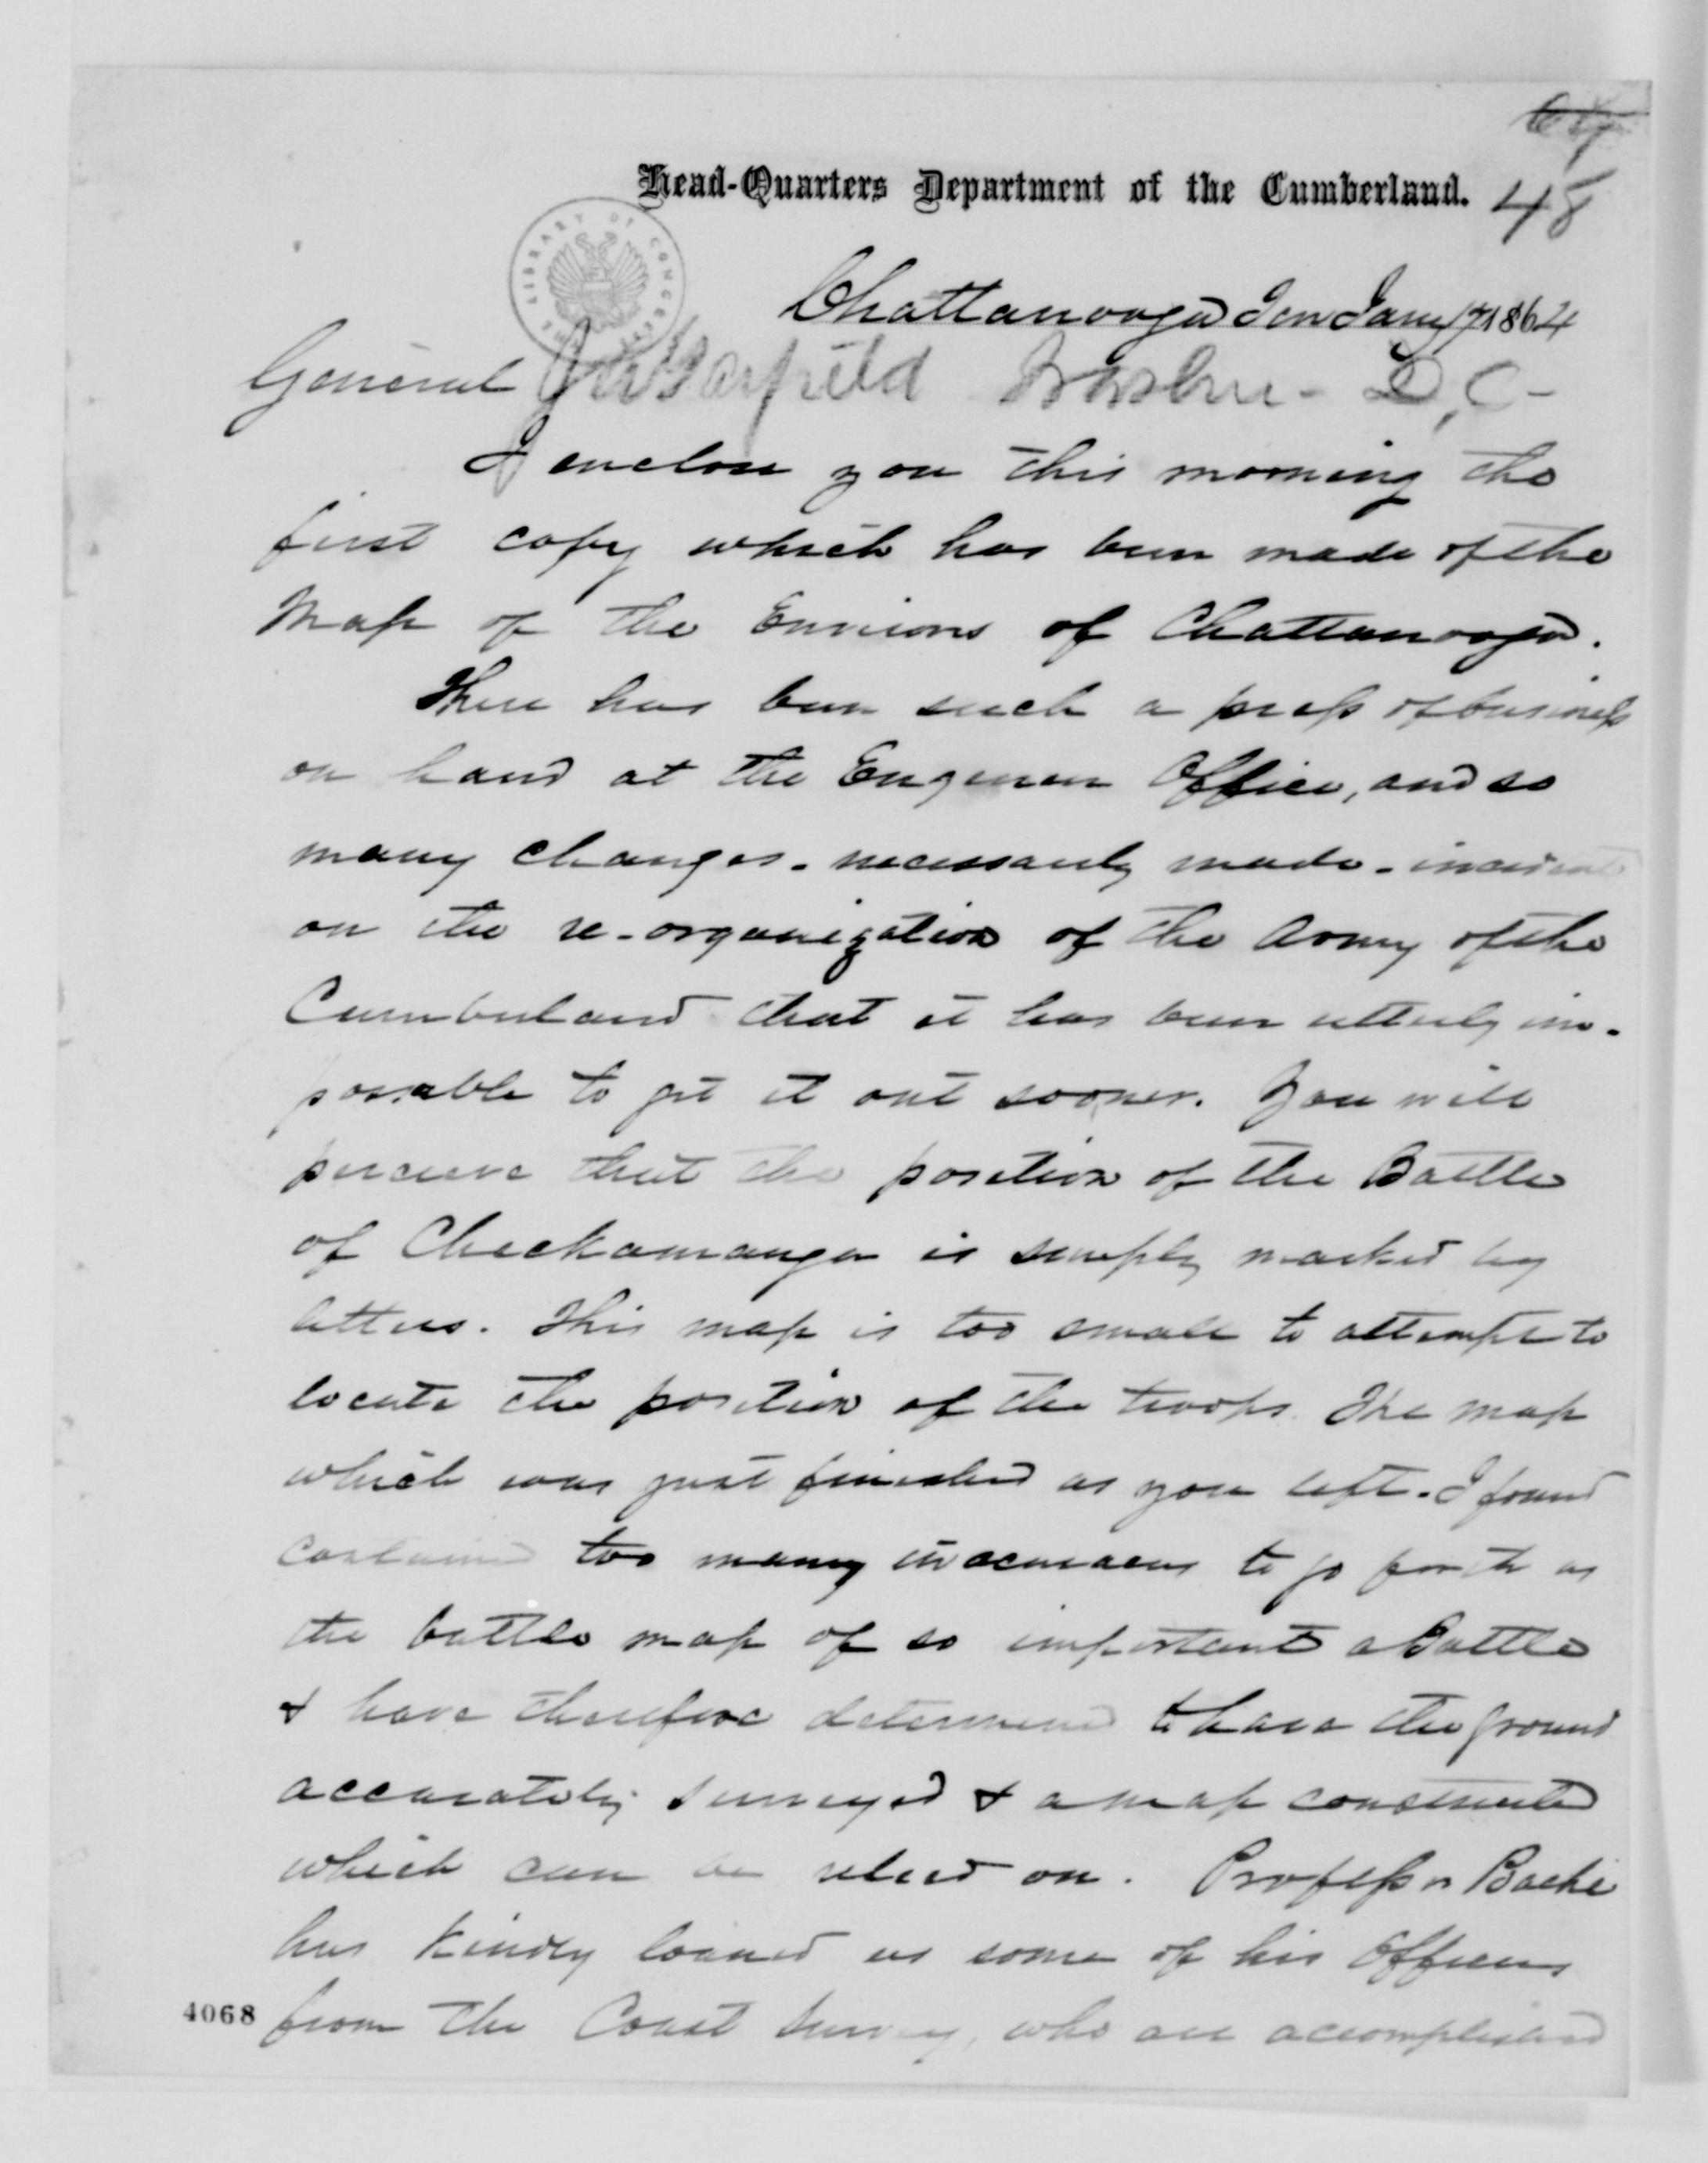 Head-Quarters Department of the Cumberland.
48
THE LIBRARY OF CONGRESS
Chattanooga Ten Jany 17 1864
General J A Garfield Washn - D,C-
I enclose you this morning the
first copy which has been made of the
Map of the Environs of Chattanooga.
There has been such a press of business
on hand at the Engineer Office, and so
many changes - necessarily made - incident
on the re-organization of the Army of the
Cumberland that it has been utterly im-
possable to get it out sooner. You will
perceive that the position of the Battle
of Checkamauga is simply marked by
letters. This map is too small to attempt to
locate the position of the troops. The map
which was just finished as you left - I found
contained too many inaccuracies to go forth as
the battle map of so important a Battle
& have therefore determined to have the ground
accurately surveyed & a map constructed
which can be relied on. Professor Bache
has kindly loaned us some of his Officers
4068
from the Coast Survey, who are accomplished